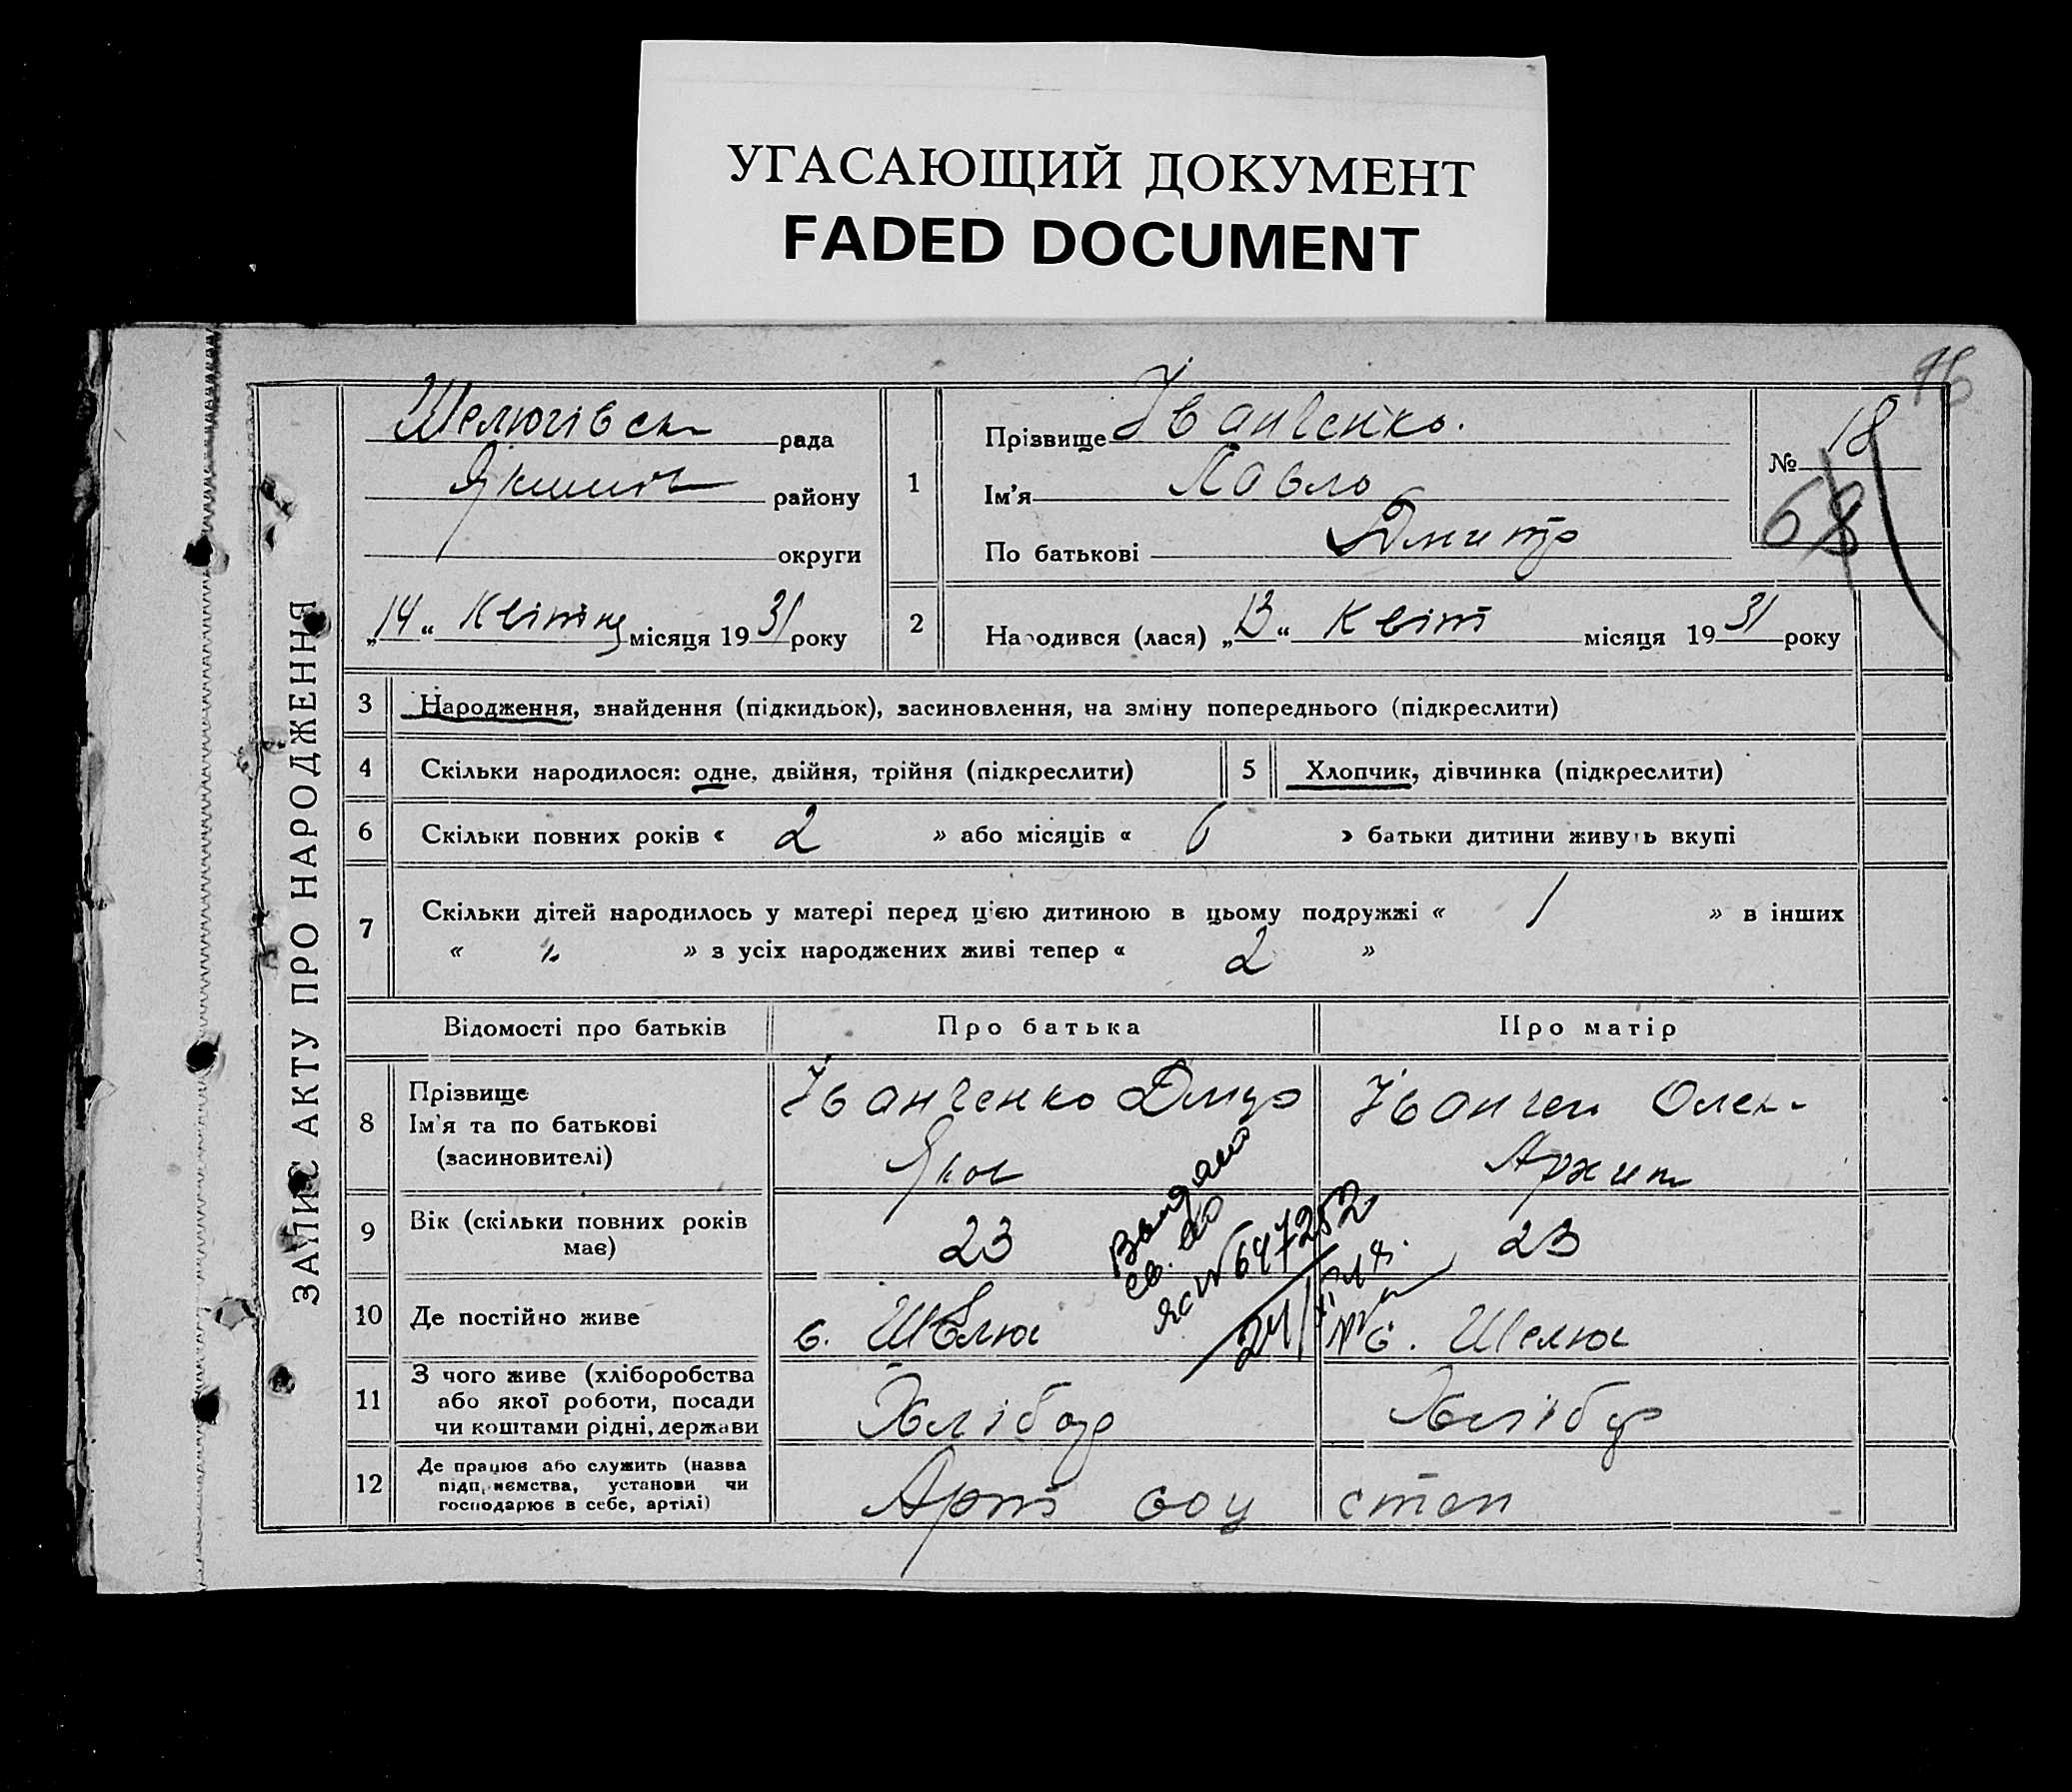 УГАСАЮЩИЙ ДОКУМЕНТ
FADED DOCUMENT
96
ЗАПИС АКТУ ПРО НАРОДЖЕННЯ
Шелюгівськ рада
Якимів району
округи
„14“ Квітня місяця 1931 року
1
Прізвище Іванченко.
Ім'я Павло
По батькові Дмитр
№ 18
68
2
Народився (лася) „13“ Квіт місяця 1931 року
3 Народження, знайдення (підкидьок), засиновлення, на зміну попереднього (підкреслити)
4 Скільки народилося: одне, двійня, трійня (підкреслити)
5 Хлопчик, дівчинка (підкреслити)
6 Скільки повних років « 2 » або місяців « 6 » батьки дитини живуть вкупі
7 Скільки дітей народилось у матері перед цією дитиною в цьому подружжі « 1 » в інших
« „ » з усіх народжених живі тепер « 2 »
Відомості про батьків
Про батька
Про матір
8 Прізвище
Ім'я та по батькові
(засиновителі)
Іванченко Дмтр
Яков
Іванчен Олек
Архип
9 Вік (скільки повних років має)
23
23
Выдано
св. во
ЯС № 647252
24/
10 Де постійно живе
с. Шелюг
с. Шелюг
11 З чого живе (хліборобства
або якої роботи, посади
чи коштами рідні, держави
Хлібор
Хлібор
12 Де працює або служить (назва
підприємства, установи чи
господарює в себе, артілі)
Арт соц степ